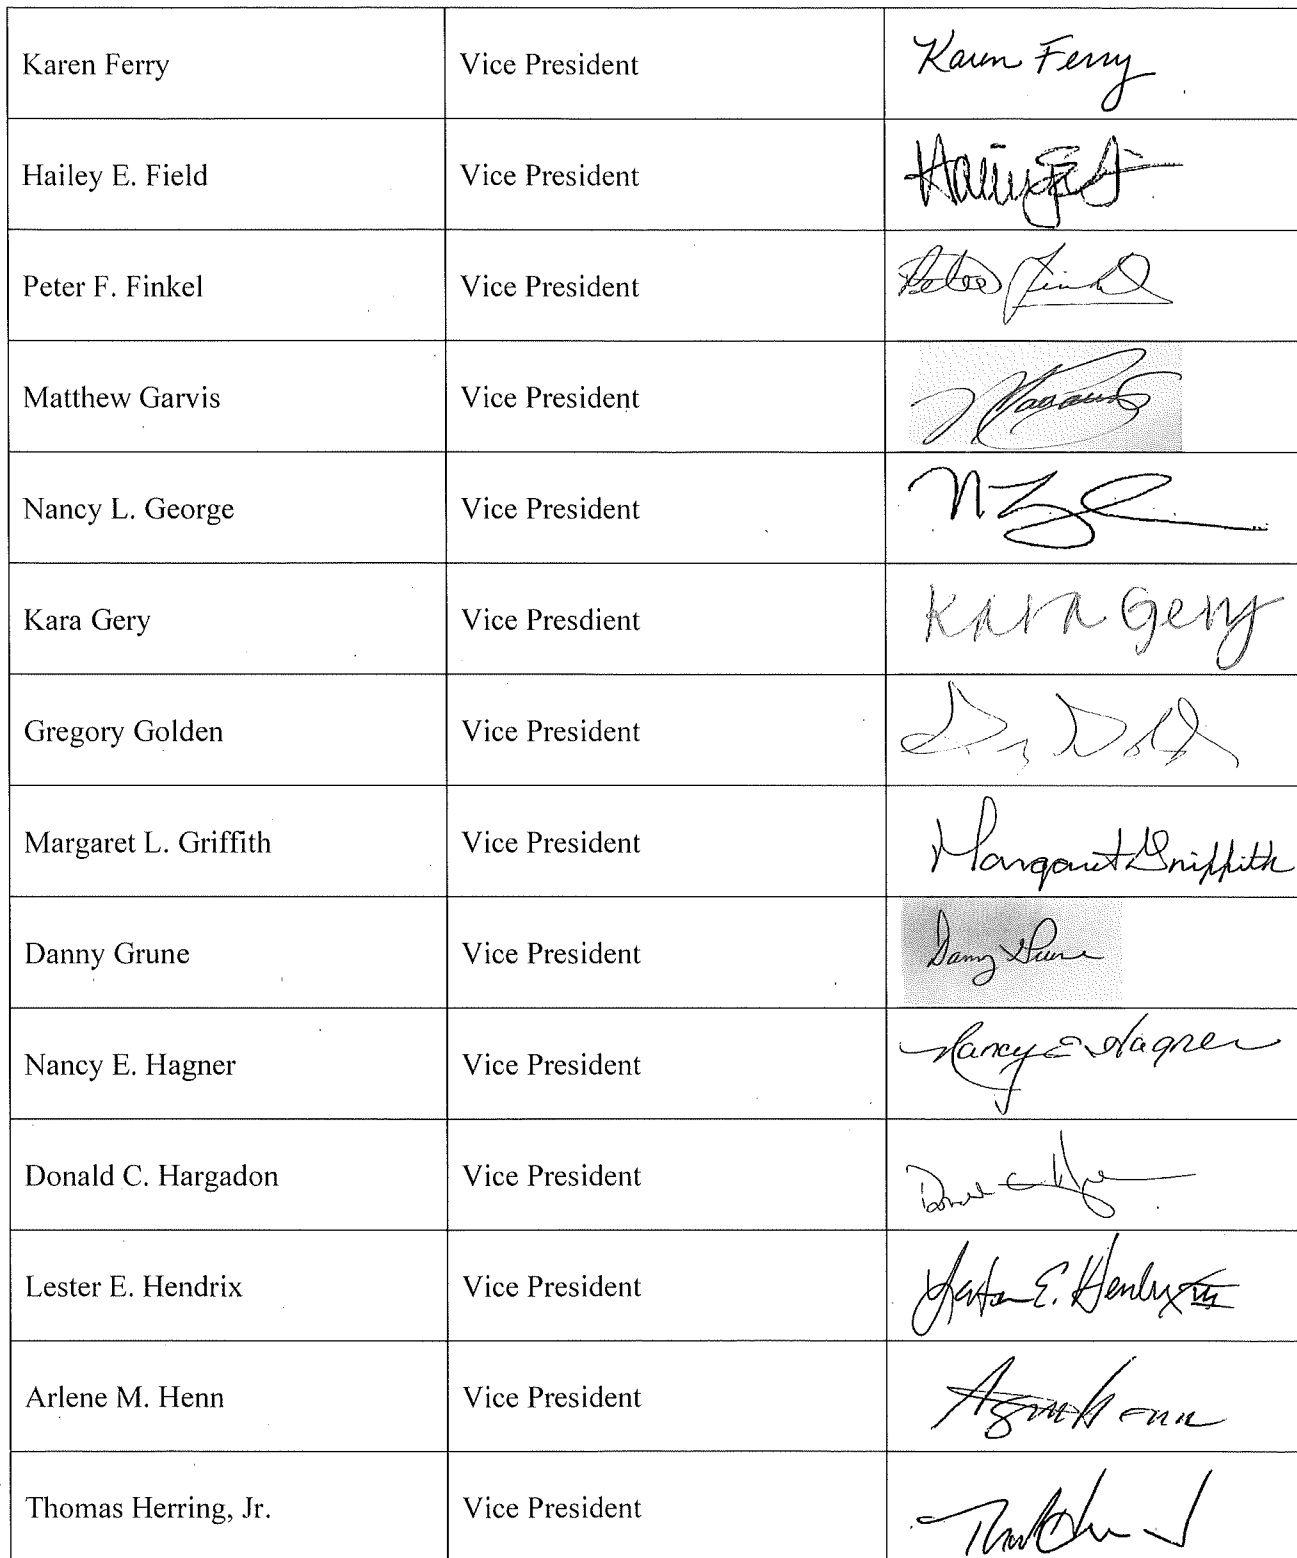 Karen Ferry Vice President Karen Ferry
Hailey E. Field Vice President
Peter F. Finkel Vice President Peter Finkel
Matthew Garvis Vice President
Nancy L. George Vice President
Kara Gery Vice Presdient Kara Gery
Gregory Golden Vice President
Margaret L. Griffith Vice President Margaret Griffith
Danny Grune Vice President Danny Grune
Nancy E. Hagner Vice President Nancy E Hagner
Donald C. Hargadon Vice President
Lester E. Hendrix Vice President Lester E. Hendrix III
Arlene M. Henn Vice President
Thomas Herring, Jr. Vice President